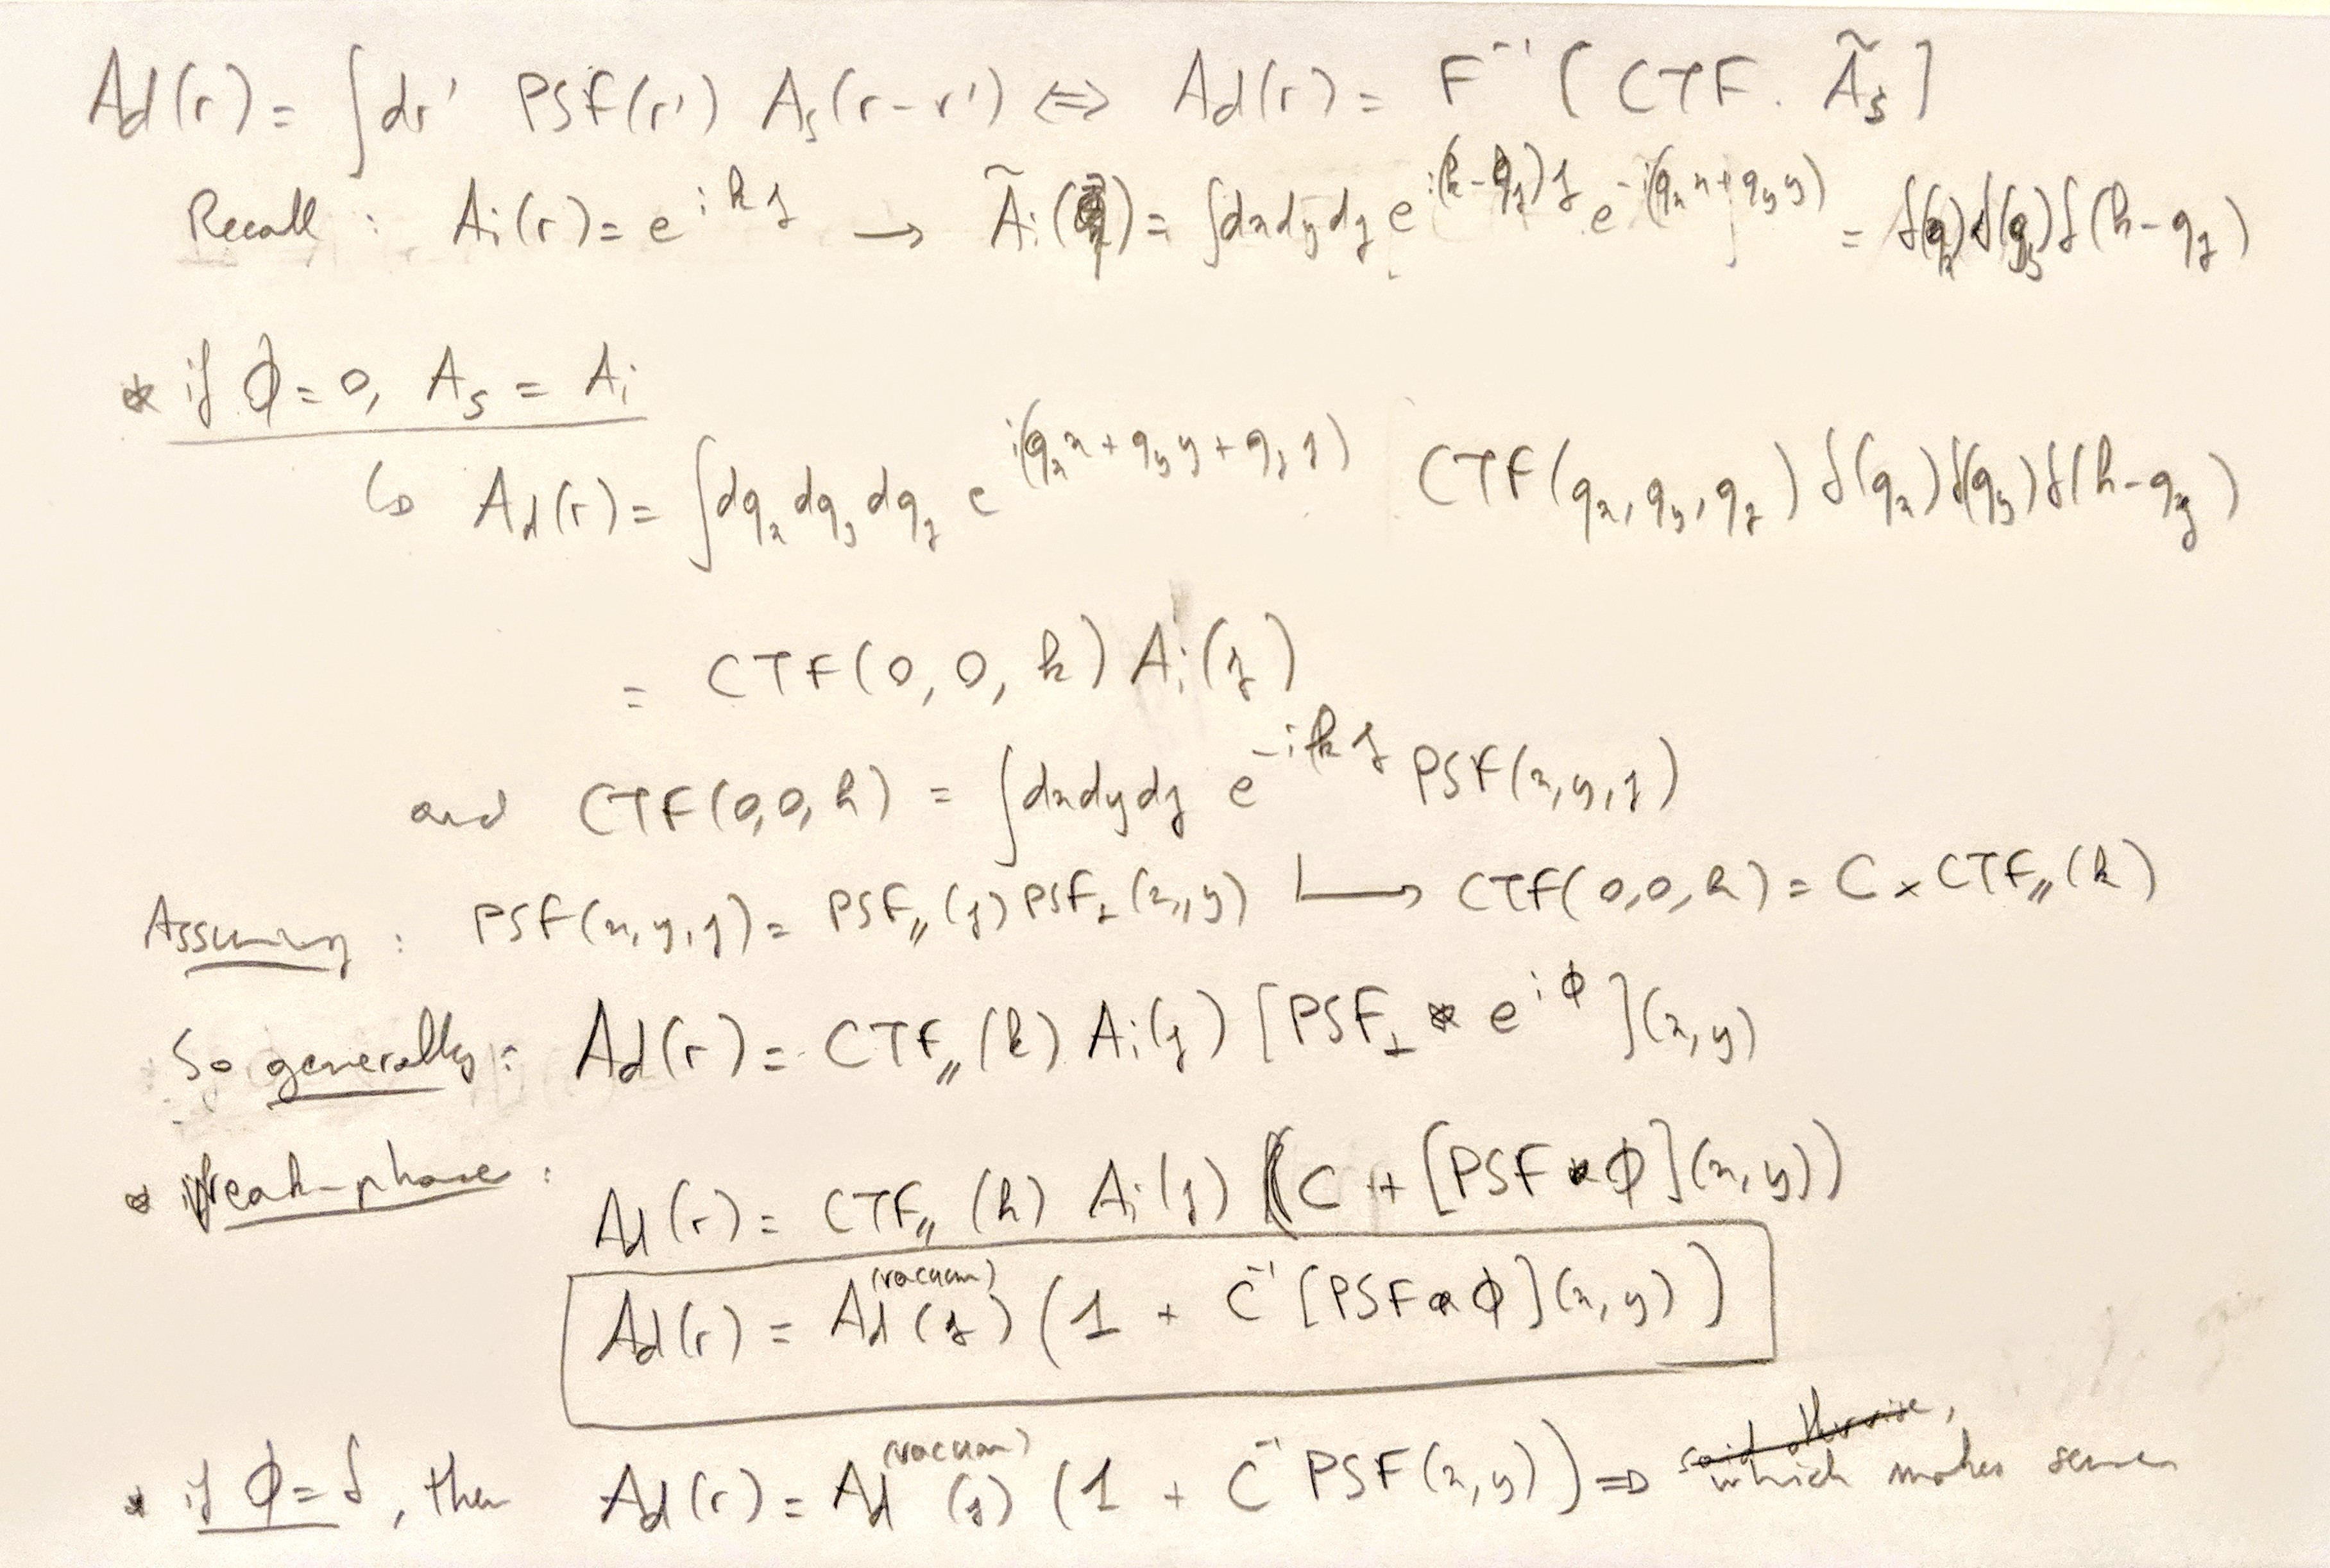 Ad(r) = ∫dr' PSF(r') As(r-r') ⇔ Ad(r) = F⁻¹[CTF. Ãs]
Recall : Ai(r) = e^{ikz} → Ãi(q) = ∫dxdydz e^{i(k-qz)z} e^{-i(qx x + qy y)} = δ(qx)δ(qy)δ(k-qz)
* if ϕ=0, As = Ai
↳ Ad(r) = ∫dqx dqy dqz e^{i(qx x + qy y + qz z)} CTF(qx, qy, qz) δ(qx)δ(qy)δ(k-qz)
= CTF(0, 0, k) Ai(z)
and CTF(0,0,k) = ∫dxdydz e^{-ikz} PSF(x,y,z)
Assuming : PSF(x,y,z) = PSF∥(z) PSF⊥(x,y) ↳ CTF(0,0,k) = C × CTF∥(k)
So generally : Ad(r) = CTF∥(k) Ai(z) [PSF⊥ * e^{iϕ}](x,y)
* Weak-phase : Ad(r) = CTF∥(k) Ai(z) (C + [PSF * ϕ](x,y))
Ad(r) = Ad^{(vacuum)}(z) (1 + C⁻¹ [PSF * ϕ](x,y))
* if ϕ = δ, then Ad(r) = Ad^{(vacuum)}(z) (1 + C⁻¹ PSF(x,y)) ⇒ which makes sense